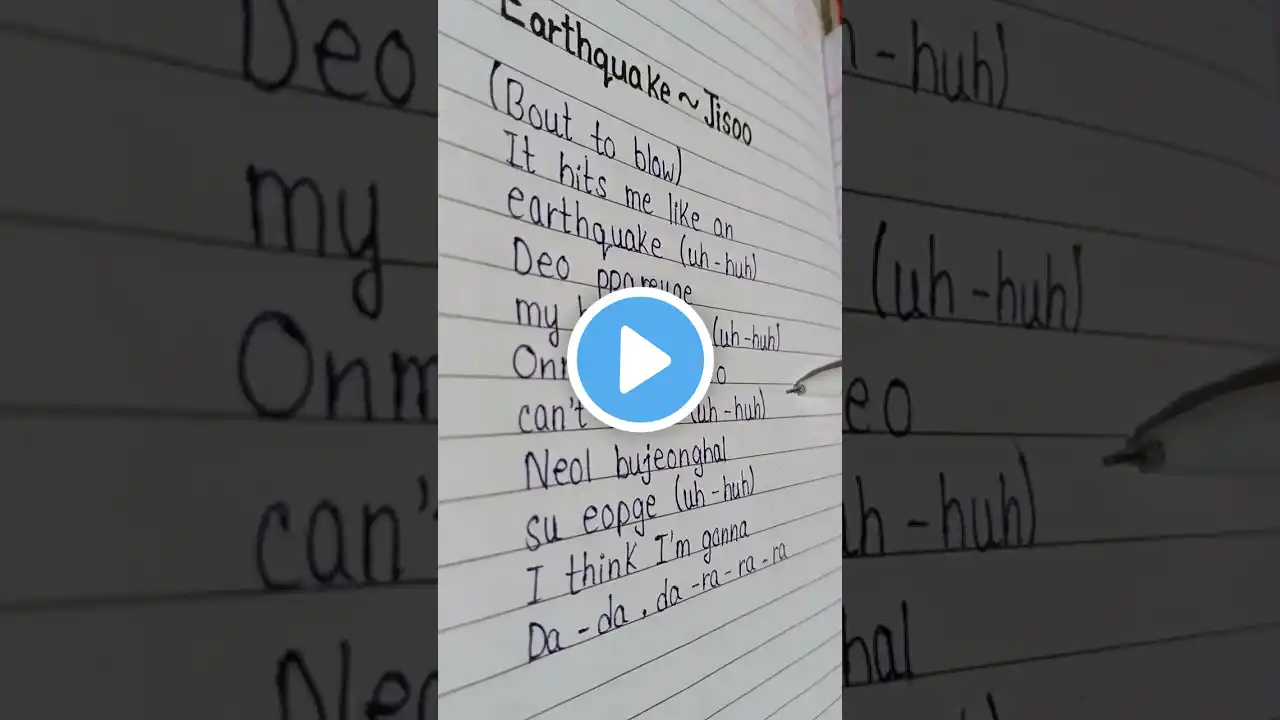 Earthquake ~ Jisoo
(Bout to blow)
It hits me like an
earthquake (uh-huh)
Deo ppareuge
my (uh-huh)
can't (uh-huh)
Neol bujeonghal
su eopge (uh-huh)
I think I'm gonna
Da - da , da -ra - ra - ra